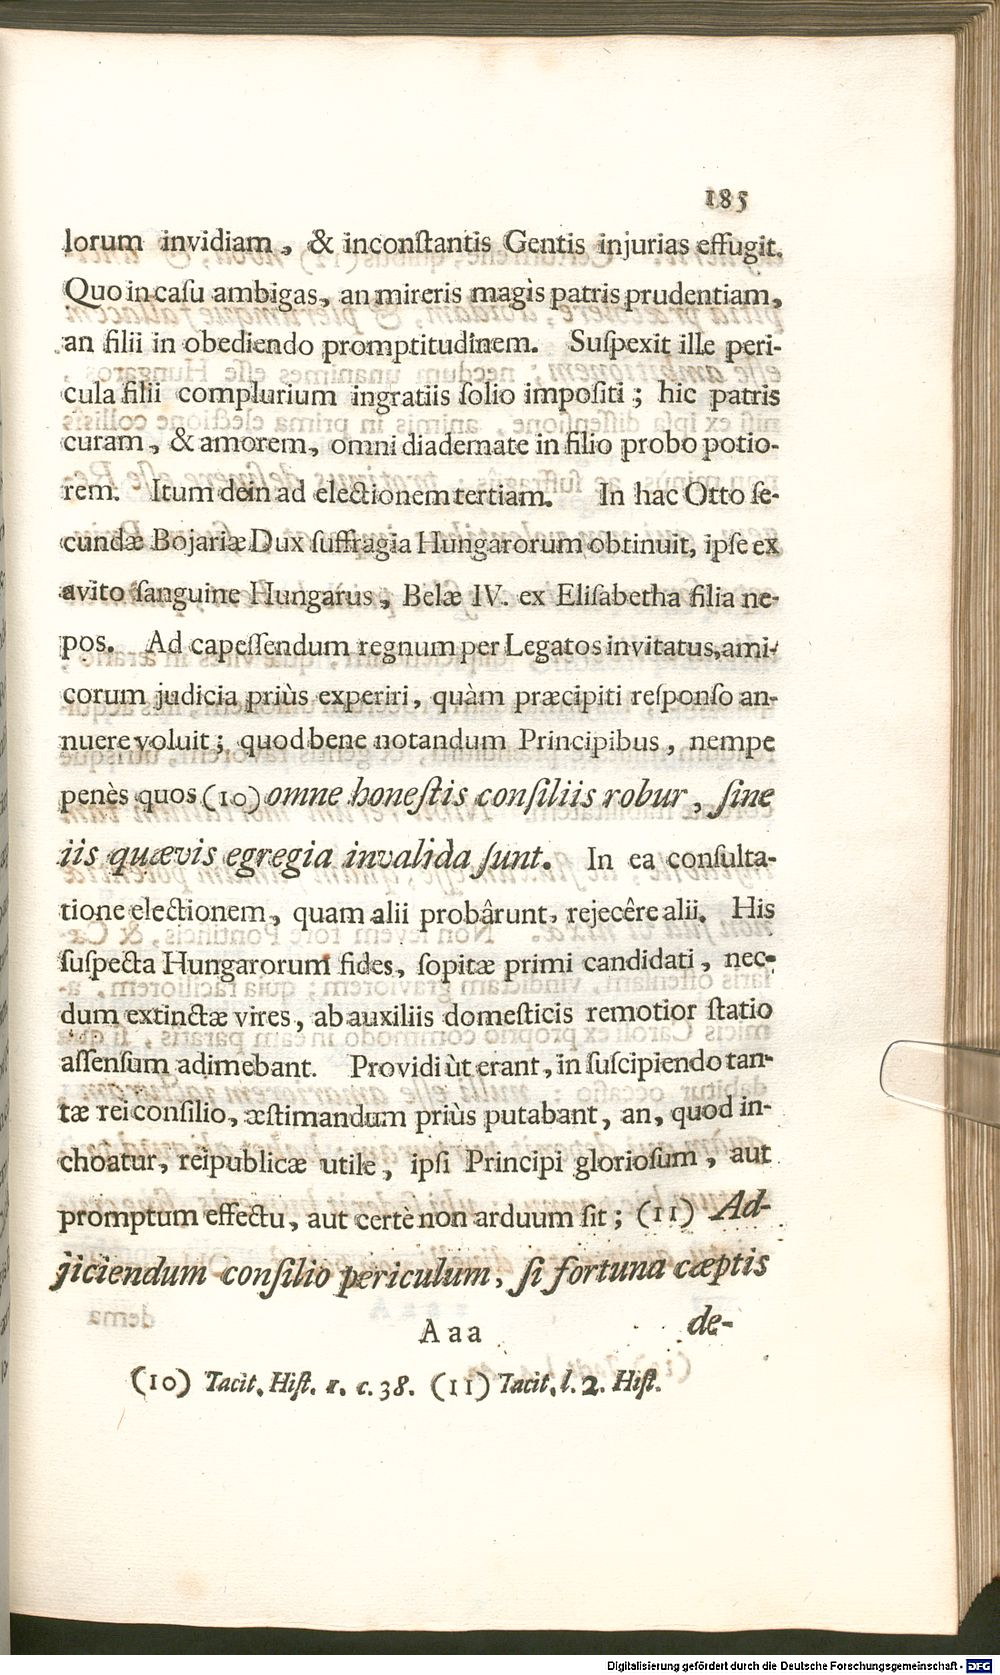 185
lorum invidiam, & inconſtantis Gentis injurias effugit.
Quo in caſu ambigas, an mireris magìs patris prudentiam,
an filii in obediendo promptitudinem. Suſpexit ille peri-
cula filii complurium ingratiis ſolio impoſiti; hic patris
curam, & amorem, omni diademate in filio probo potio-
rem. Itum dein ad electionem tertiam. In hac Otto ſe-
cundæ Bojariæ Dux ſuffragia Hungarorum obtinuit, ipſe ex
avito ſanguine Hungarus, Belæ IV. ex Eliſabetha filia ne-
pos. Ad capeſſendum regnum per Legatos invitatus, ami-
corum judicia priùs experiri, quàm præcipiti reſponſo an-
nuere voluit; quod bene notandum Principibus, nempe
penès quos (10) omne honeſtis conſiliis robur, ſine
iis quævis egregia invalida ſunt. In ea conſulta-
tione electionem, quam alii probârunt, rejecêre alii. His
ſuſpecta Hungarorum fides, ſopitæ primi candidati, nec-
dum extinctæ vires, ab auxiliis domeſticis remotior ſtatio
aſſenſum adimebant. Providi ùt erant, in ſuſcipiendo tan-
tæ rei conſilio, æſtimandum priùs putabant, an, quod in-
choatur, reipublicæ utile, ipſi Principi glorioſum, aut
promptum effectu, aut certè non arduum ſit; (11) Ad-
jiciendum conſilio periculum, ſi fortuna cæptis
Aaa de-
(10) Tacit. Hiſt. 1. c. 38. (11) Tacit. l. 2. Hiſt.
Digitalisierung gefördert durch die Deutsche Forschungsgemeinschaft - DFG